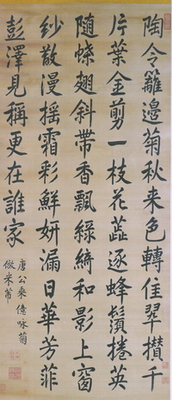 陶令籬邊菊秋来色轉佳翠攢千
片葉金剪一枝花蕋逐蜂鬚捲英
随蝶翅斜帶香飄緑綺和影上窗
紗散漫摇霜彩鮮妍漏日華芳菲
彭澤見稱更在誰家
唐公乘億咏菊
倣米芾